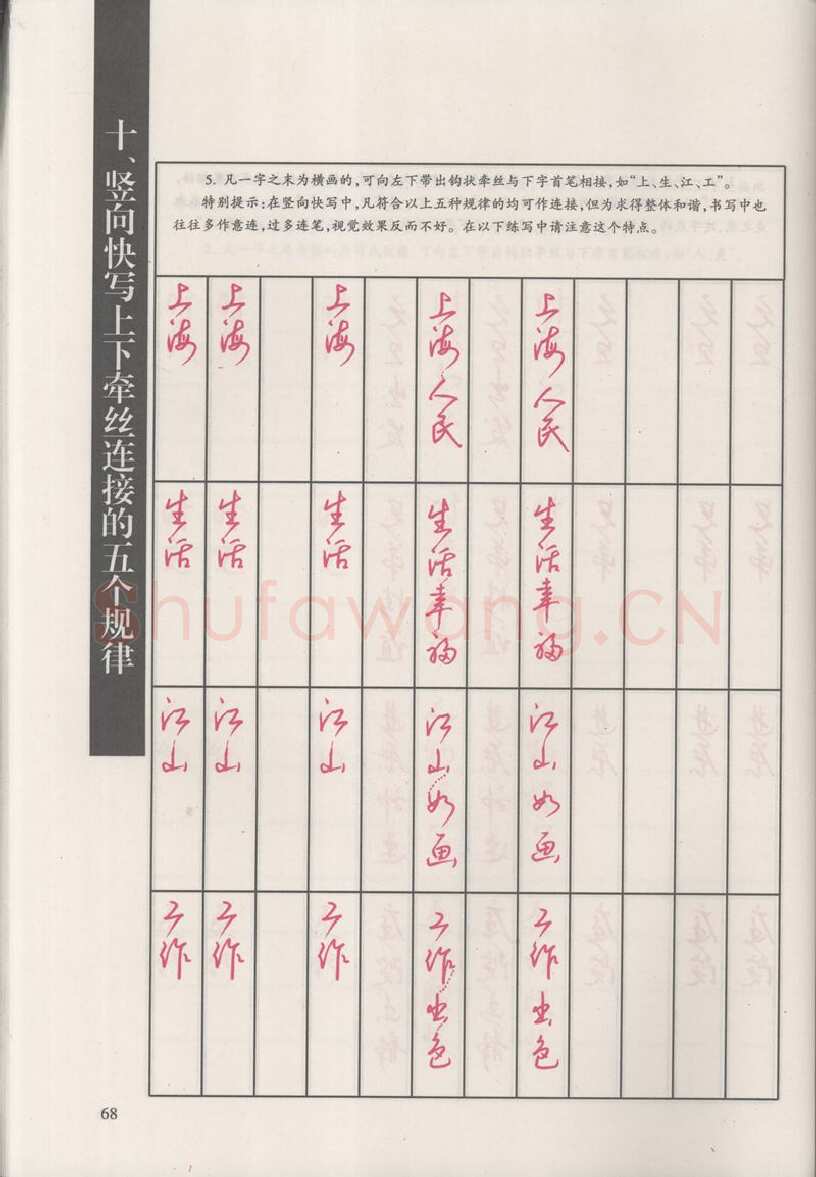 十、竖向快写上下牵丝连接的五个规律
5. 凡一字之末为横画的,可向左下带出钩状牵丝与下字首笔相接,如“上、生、江、工”。
特别提示:在竖向快写中,凡符合以上五种规律的均可作连接,但为求得整体和谐,书写中也
往往多作意连,过多连笔,视觉效果反而不好。在以下练写中请注意这个特点。
上海
上海
上海
上海人民
上海人民
生活
生活
生活
生活幸福
生活幸福
江山
江山
江山
江山如画
江山如画
工作
工作
工作
工作出色
工作出色
Shufawang.CN
68